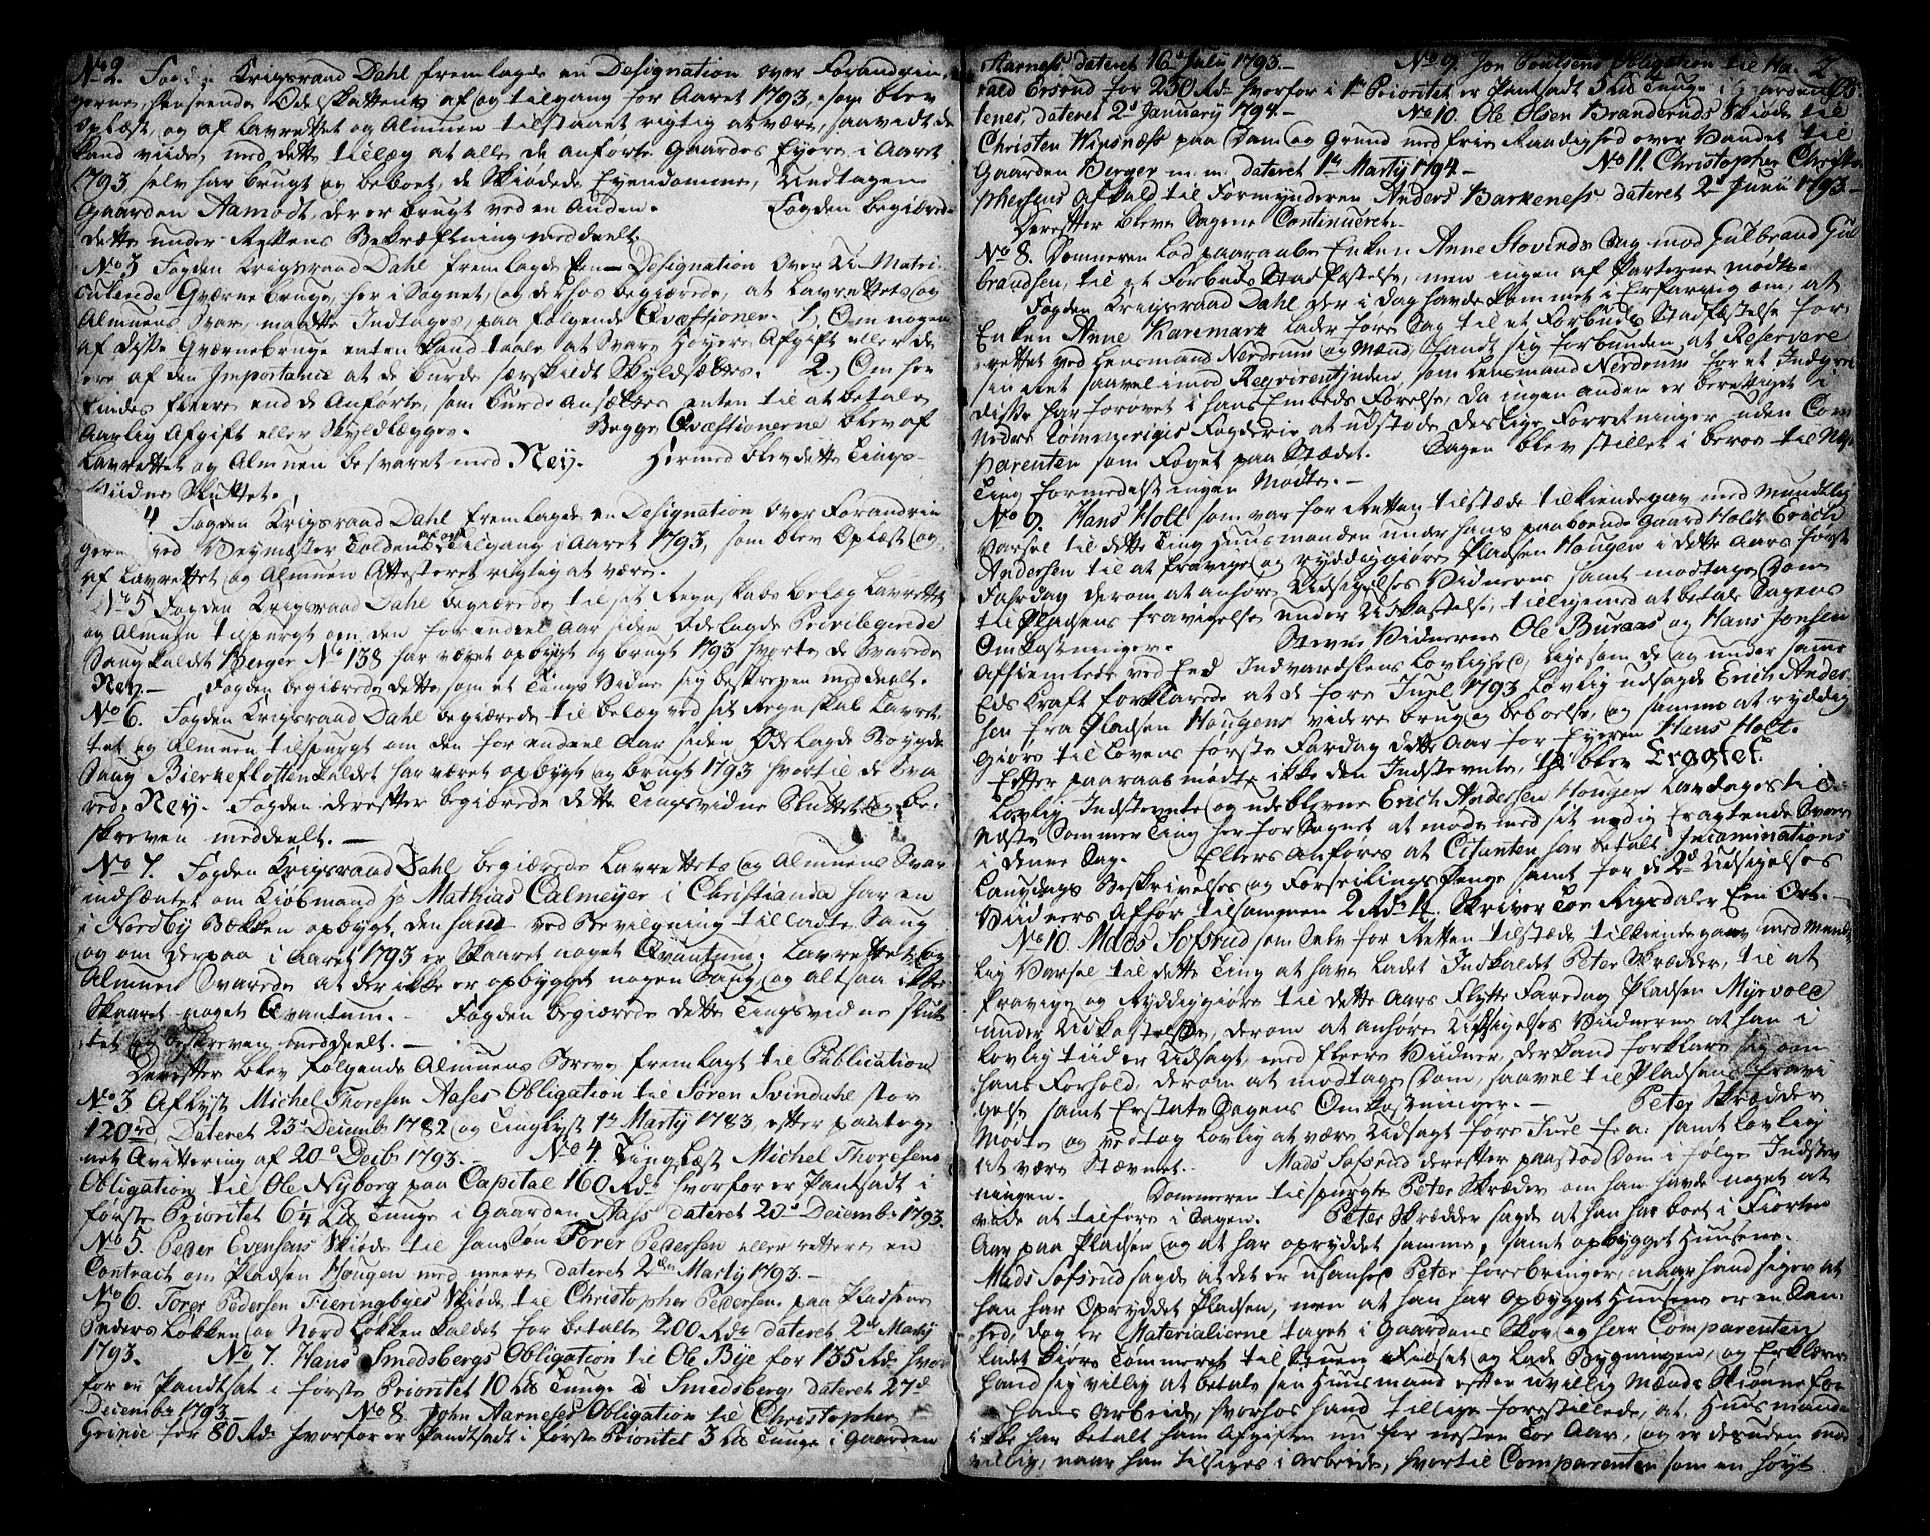 No 2. Fogden Krigsraad Dahl fremlagde en Designation over Forandrin-
gerne, henseende Odelskattens af og tilgang for Aaret 1793, som blev
oplæst, og af Lavrettet og Almuen tilstaaet rigtig at være, saavidt de
kand viide, med dette tillæg at alle de anførte Gaardes Eyere i Aaret
1793 selv har brugt og beboet, de Skiødede Eyendomme, Undtagen
Gaarden Aamodt, der er brugt ved en Anden. Fogden begiærede
dette under Rettens Bekræftning meddeelt.
No 3 Fogden Krigsraad Dahl fremlagde Een Designation over U-Matri-
culerede Qværnebruge, her i Sognet, og derhos begiærede, at Lavrettets og
Almuens Svar, maatte Indtages, paa følgende Qvæstioner. 1, Om nogen
af disse Qværnebruge enten kand taale at svare Høyere Afgift eller de
ere af den Importance at de burde særskildt Skyldsættes. 2.) Om her
findes fleere end de Anførte, som burde ansættes enten til at betale
Aarlig Afgift eller Skyldlægges. Begge Qvæstionerne blev af
Lavrettet og Almuen besvaret med Ney. Hermed blev dette Tings-
Viidne Sluttet.
4 Fogden Krigsraad Dahl fremlagde en Designation over Forandrin
gerne ved Veymester Toldens af og Tilgang i Aaret 1793, som blev Oplæst og
af Lavrettet og Almuen Attesteret rigtig at være.
No 5 Fogden Krigsraad Dahl begiærede til sit Regnskabs belæg Lavrettet
og Almuen tilspurgt om den for endeel Aar siden Ødelagde Privilegerede
Saug kaldet Berger No 138 har været opbygt og brugt 1793 hvorte de Svarede
Ney. Fogden begiærede dette som et Tings Vidne sig beskreven meddeelt.
No 6. Fogden Krigsraad Dahl begiærede til belæg ved sit Regnskab Lavret-
tet og Almuen tilspurgt om den for endeel Aar siden Ødelagde Bøygde
Saug Bierkefløtten kaldet har været opbygt og brugt 1793 hvortil de Sva
rede Ney. Fogden derefter begiærede dette Tingsvidne Sluttet og be-
skreven meddeelt.
No 7. Fogden Krigsraad Dahl begiærede Lavrettets og Almuens Svar
indhæntet om Kiøbmand Hr Mathias Calmeyer i Christiania har en
i Nordby Bækken opbygt, den ham ved Bevilgning tilladte Saug
og om derpaa i Aaret 1793 er Skaaret noget Qvantum. Lavrettet og
Almuen Svarede at der ikke er opbygget nogen Saug og altsaa ikke
Skaaret noget Qvantum. Fogden begiærede dette Tingsvidne Slut
tet og beskreven meddeelt.
Derefter blev følgende Almuens Breve fremlagt til Publication
No 3 Aflyst Michel Thoresen Aases Obligation til Søren Svindahl stor
120 rd, Dateret 23d Decemb 1782 og Tinglyst 1te Marty 1783, efter paateg-
net Qvittering af 20d Decb 1793. No 4. Ting Læst Michel Thoresens
Obligation til Ole Nyborg paa Capital 160 Rd hvorfor er Pantsadt i
første Prioritet 6 1/4 Ls Tunge i Gaarden Aass dateret 20d Decembr 1793.
No 5. Peder Evensens Skiøde til hans Søn Torer Pedersen eller rettere en
Contract om Pladsen Hougen med meere dateret 2den Marty 1793.
No 6. Torer Pedersen Fieringbyes Skiøde til Christopher Pedersen paa Pladsene
Søndersløkken og Nordløkken kaldet for betalte 200 Rdr dateret 2de Marty
1793. No 7. Hans Smedsbergs Obligation til Ole Bye for 135 Rd hvor
for er Pandtsat i første Prioritet 10 Ls Tunge i Smedsberg, dateret 27d
Decembr 1793. No 8. John Aarnesses Obligation til Christopher
Grinde for 80 Rd hvorfor er Pandtsadt i første Prioritet 3 Ls Tunge i Gaarden
Aarness. dateret 16d July 1793. No 9. Jon Poulsens Obligation til Ha- 2
rald Ersrud for 250 Rd hvorfor i 1te Prioritet er Pantsadt 5 Ls Tunge i Gaarden
tenes, dateret 2d January 1794. No 10. Ole Olsen Branderuds Skiøde til
Christen Wigsnæss paa Dam og Grund med frie Raadighed over Vandet til
Gaarden Berger m. m. dateret 1te Marty 1794. No 11. Christopher Christo
phersens afkald til Formynderen Anders Barkeness dateret 2d Juny 1793.
Derefter bleve Sagene Continueret.
No 8. Dommeren lod paaraabe Enken Anne Slovinds Sag mod Gulbrand Gul
brandsen, til et Forbuds Stadfæstelse, men ingen af Parterne mødte.
Fogden Krigsraad Dahl der i dag havde kommet i Erfaring om, at
Enken Anne Karemark lader føre Sag til et Forbuds Stadfæstelse for-
rettet ved Lensmand Nerdrum og Mænd, fandt sig forbunden at Reservere
sin Ret saavel imod Reqvirentinden, som Lensmand Nerdrum for et Indgreb
disse har forøvet i hans Embeds Førelse, da ingen anden er berettiget i
Nedre Rommerigis Fogderie at udstede deslige Forretninger uden Com
parenten som Foget paa Stædet. Sagen blev stillet i beroe til Næste
Ting formedelst ingen Mødte.
No 9. Hans Holt som var for Retten tilstæde tilkiendegav med Mundtlig
Varsel til dette Ting Huusmanden under hans paaboende Gaard Holdt Erich
Andersen til at fravige og ryddiggiøre Pladsen Hougen i dette Aars første
Fahrdag derom at anhøre Udsigelses Vidnerne samt modtage Dom
til Pladsens fravigelse under Udkastelse, tilligemed at betale Sagens
Omkostninger. Stevne Vidnerne Ole Buraas og Hans Jonsen
Afhiemlede ved Eed Indvarslens Lovlighed, ligesom de og under samme
Eds Kraft forklarede at de føre Juul 1793 Lovlig udsagde Erich Ander-
sen fra Pladsen Hougens videre brug og beboelse, og samme at ryddig
giøre til Lovens første Fardag dette Aar for Eyeren Hans Holt.
Efter paaraab mødte ikke den Indstevnte, thi blev Eragtet.
Lovlig Indstevnte og udeblevne Erich Andersen Hougen Lavdages til
Næste Sommer Ting her for Sognet at møde med sit nødig eragtende Svar
i denne Sag. Ellers anføres at Citanten har betalt Incaminations
Laugdags Beskrivelses og Forseiglings Penge samt for de 2de Udsigelses
Viidners Afhør tilsammen 2 Rd 1 ort. Skriver Toe Rigsdaler Een Ort.
No 10. Mads Sofsrud som selv for Retten tilstæde tilkiendegav med Mundt
lig Varsel til dette Ting at have Ladet Indkaldet Peter Skrædder, til at
fravige og Ryddiggiøre til dette Aars Flytte Faredag Pladsen Myrvold
under Udkastelse, derom at anhøre Udsigelses Viidnerne at han i
lovlig tiid er Udsagt, med fleere Viidner, der kand forklare sig om
hans Forhold, derom at modtage Dom, saavel til Pladsens fravi
gelse samt Erstatte Sagens Omkostninger. Peter Skrædder
Mødte og vedtog lovlig at være Udsagt føre Juul f: a: samt lovlig
at være Stævnet. Mads Sofsrud derefter paastod Dom i følge Indstev
ningen. Dommeren tilspurgte Peter Skræder om han havde noget at
vide at tilføre i Sagen. Peter Skrædder sagde at han har boet i Fiorten
Aar paa Pladsen og at har opryddet samme, samt opbygget Huusene.
Mads Sofsrud sagde at det er usanhed Peter forebringer, naar hand siger at
han har Opryddet Pladsen, men at han har Opbygget Huusene er en San-
hed, dog er Materialierne taget i Gaardens Skov og har Comparenten
ladet kiøre Tømmeret til Stuen Fiøset og Lade Bygningen, og Erklærer
hand sig villig at betale sin Huusmand efter uvillig Mænds Skiønne for
hans Arbeide, hvorhos hand tillige forestillede, at Huusmanden
ikke har betalt ham Afgiften nu for nesten Toe Aar, og er desuden mod
villig, naar han tilsiges i Arbeide, hvortil Comparenten som en høyt